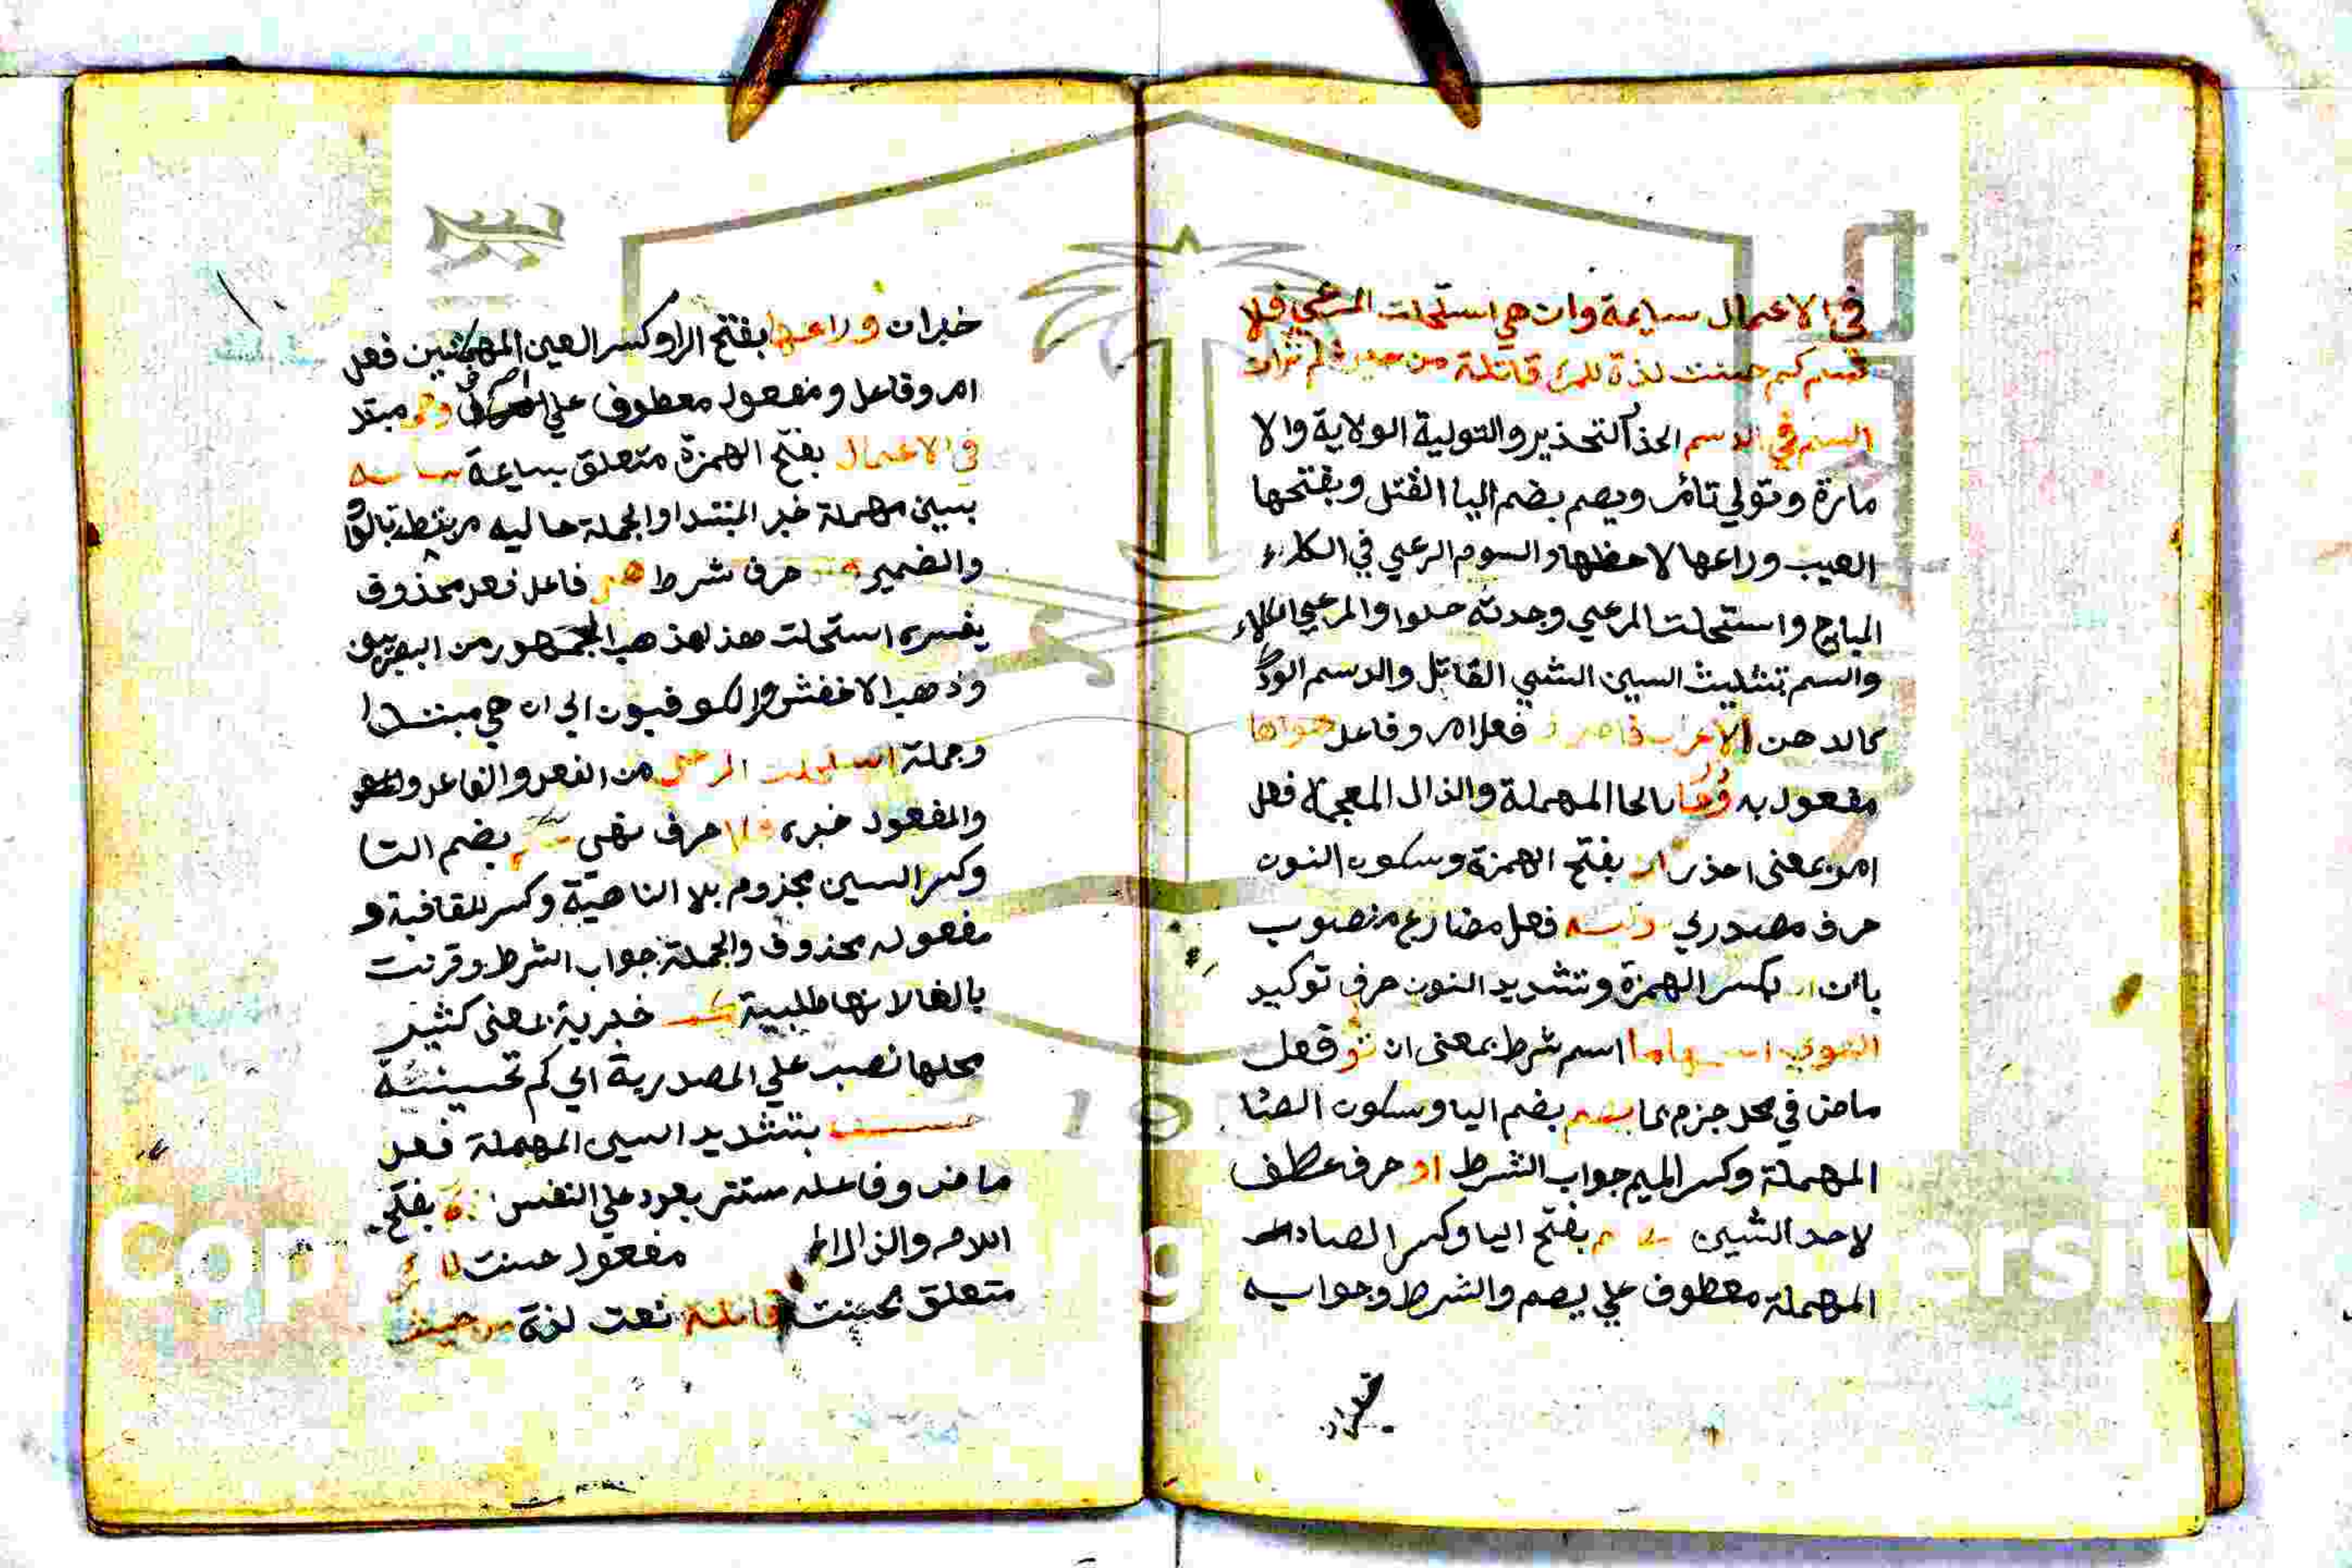 في الاعمال سايمة وان هي استحلت المرعي فلا
تسم كم حسنت لذة للمرء قاتلة من حيث لم تران
السم في الدسم الحذا التحذير والتولية الولاية والا
مارة وتولي تائمر ويصم بضم اليا القتل وبفتحها
العيب وراعها لاحظها والسوم الرعي في الكلاء
المباح واستحلت المرعي وجدته حلوا والمرعي الكلاء
والسم بتثليث السين الشي القاتل والدسم الودك
كالدهن الاعراب فاصرف فعل امر وفاعل هواها
مفعول به وحا بالحا المهملة والذال المعجمة فعل
امر بمعنى احذر ان بفتح الهمزة وسكون النون
حرف مصدري توليه فعل مضارع منصوب
بان ان بكسر الهمزة وتشديد النون حرف توكيد
الهوي اسمها ما اسم شرط بمعنى ان تو فعل
ماض في محل جزم بما يصم بضم اليا وسكون الصا
المهملة وكسر الميم جواب الشرط او حرف عطف
لاحد الشيين يصم بفتح اليا وكسر الصاد
المهملة معطوف علي يصم والشرط وجوابه
خبران
خبران وراعها بفتح الرا وكسر العين المهملتين فعل
امر وفاعل ومفعول معطوف علي اصرف وهي مبتد
في الاعمال بفتح الهمزة متعلق بسايمة سايمه
بسين مهملة خبر المبتدا والجملة حاليه مرتبطة بالواو
والضمير وان حرف شرط هي فاعل فعل محذوف
يفسره استحلت هذا مذهب الجمهور من البصريين
وذهب الاخفش والكوفيون الي ان هي مبتدا
وجملة استحلت المرعي من الفعل والفاعل
والمفعول خبره فلا حرف نهي تسم بضم التا
وكسر السين مجزوم بلا الناهية وكسر للقافية و
مفعوله محذوف والجملة جواب الشرط وقرنت
بالفا لانها طلبية كم خبرية بمعنى كثير
محلها نصب علي المصدرية اي كم تحسينة
حسنت بتشديد السين المهملة فعل
ماض وفاعله مستتر يعود علي النفس لذة بفتح
اللام والذال مفعول حسنت للمرء
متعلق بحسنت قاتلة نعت لذة من حيث